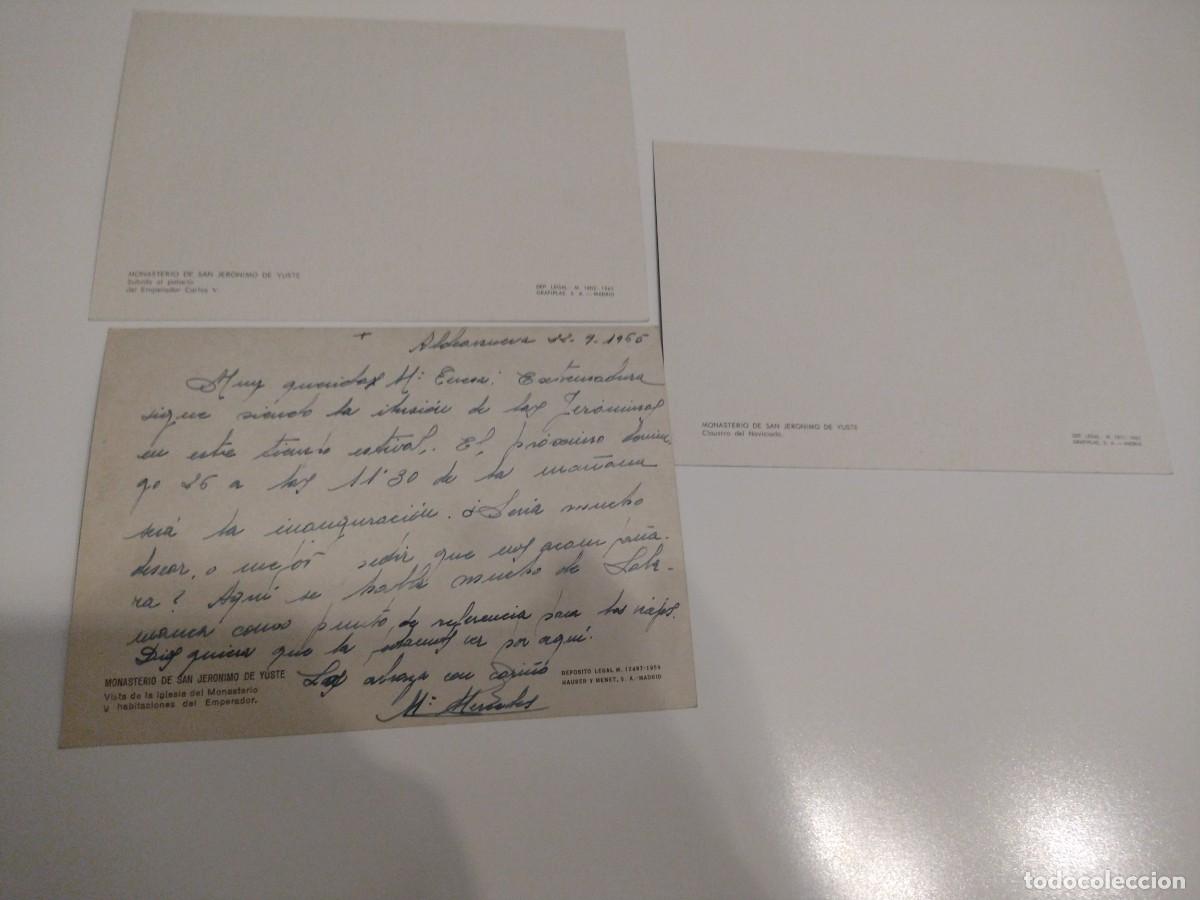 MONASTERIO DE SAN JERONIMO DE YUSTE
Subida al palacio
del Emperador Carlos V.
DEP. LEGAL. M.
GRAFIPLAS, S. A. — MADRID
MONASTERIO DE SAN JERONIMO DE YUSTE
Claustro del Noviciado.
DEP. LEGAL. M.
GRAFIPLAS, S. A. — MADRID
+ Aldeanueva 22-9-1965
Muy queridas Mª Extremadura
sigue siendo la ilusión de las Jerónimas
en este tiempo estival. El próximo domin-
go 26 a las 11'30 de la mañana
será la inauguración. Sería mucho
desear, o mejor pedir que nos acompaña-
ra? Aquí se habla mucho de Sala-
manca como punto de referencia para los viajes.
Dios quiera que la veamos por aquí.
Las abraza con cariño
Mª Mercedes
MONASTERIO DE SAN JERONIMO DE YUSTE
Vista de la iglesia del Monasterio
y habitaciones del Emperador.
DEPOSITO LEGAL M. 12487-1959
HAUSER Y MENET, S. A.-MADRID
todocoleccion